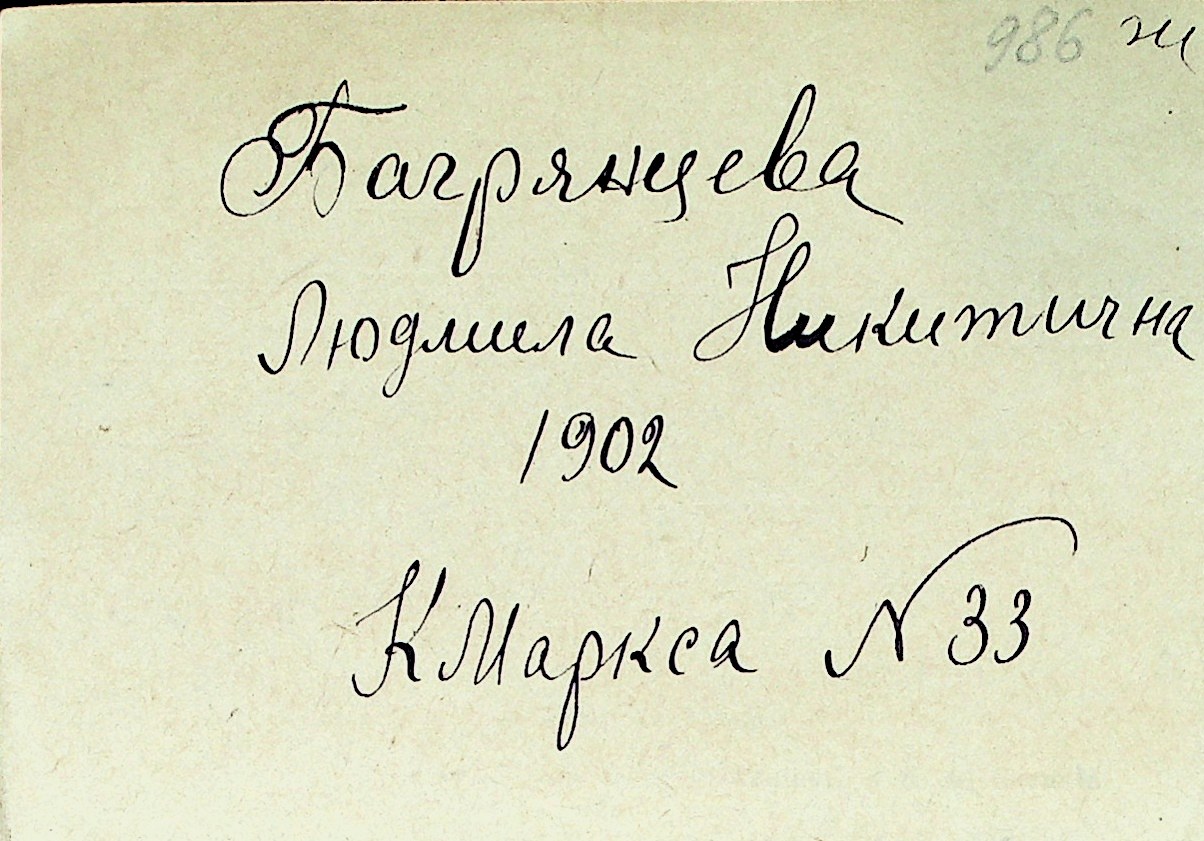 986 ж
Багрянцева
Людмила Никитична
1902
К Маркса N 33